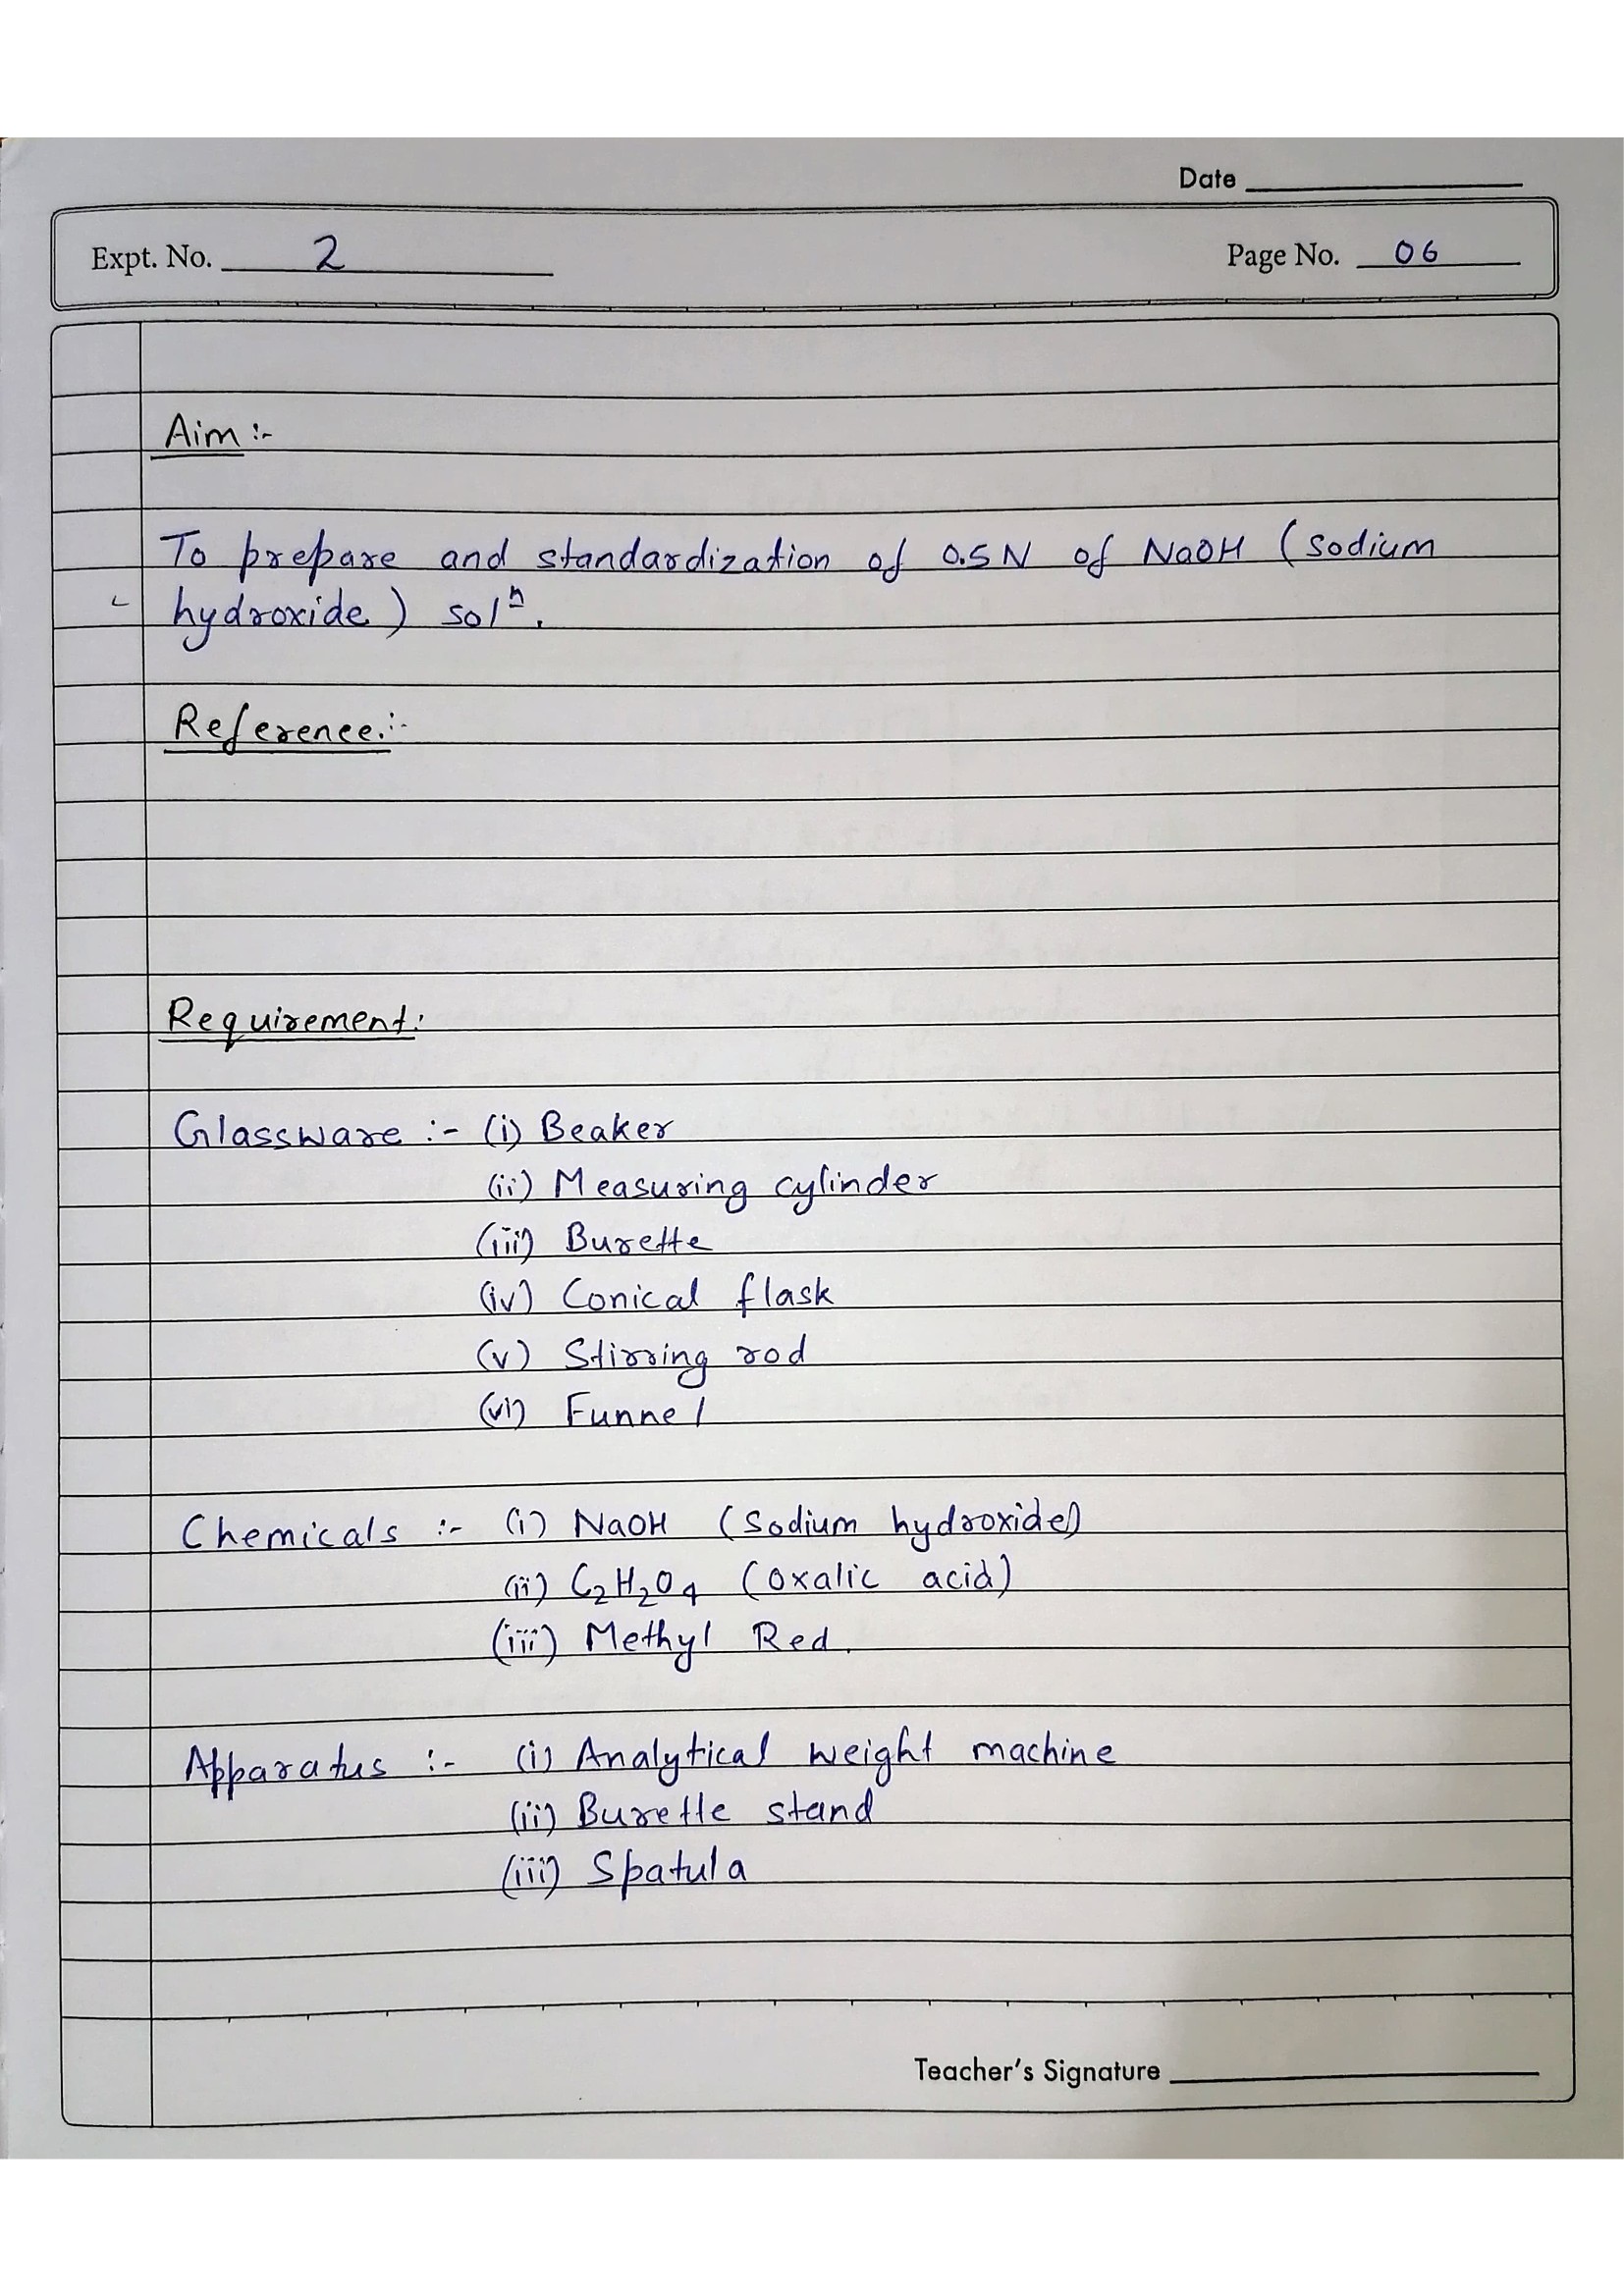 Date
Expt. No. 2
Page No. 06
Aim :-
To prepare and standardization of 0.5N of NaOH (sodium
hydroxide) solⁿ.
Reference:-
Requirement:
Glassware :- (i) Beaker
(ii) Measuring cylinder
(iii) Burette
(iv) Conical flask
(v) Stirring rod
(vi) Funnel
Chemicals :- (i) NaOH (Sodium hydroxide)
(ii) C₂H₂O₄ (Oxalic acid)
(iii) Methyl Red.
Apparatus :- (i) Analytical weight machine
(ii) Burette stand
(iii) Spatula
Teacher's Signature